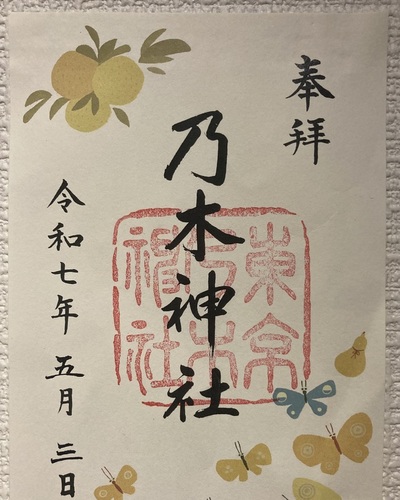 奉拝
乃木神社
東京
乃木
神社
令和七年五月三日